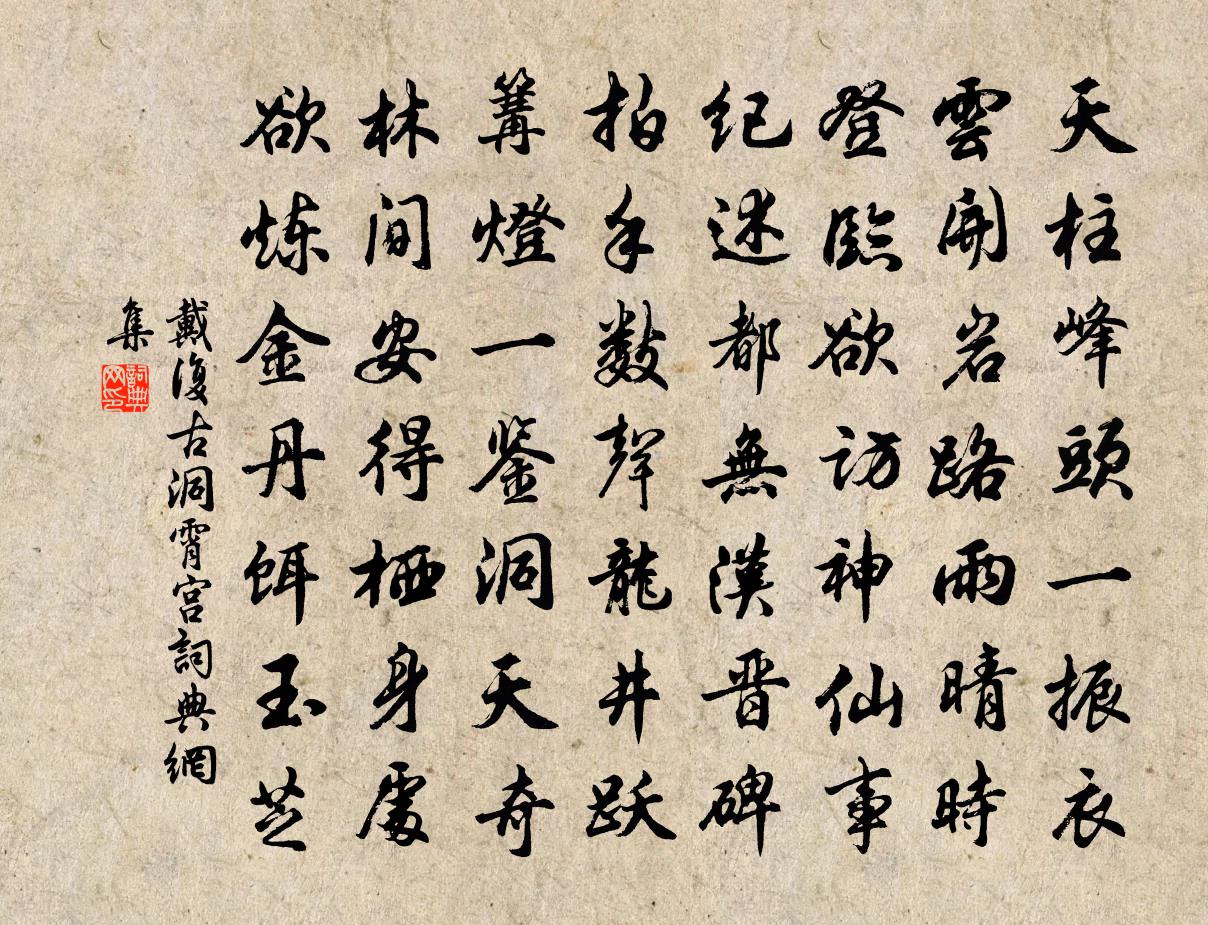 天柱峰頭一振衣
雲開岩路雨晴時
登臨欲訪神仙事
纪述都無漢晋碑
拍手數聲龍井跃
篝燈一鉴洞天奇
林间安得栖身處
欲炼金丹饵玉芝
戴復古洞霄宫詞典網
集
詞典
网印